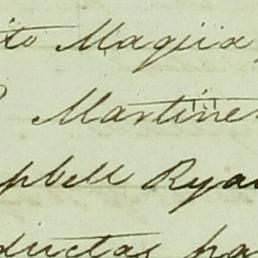 ito Maquia
Martine
pbell Rya
ductas pa